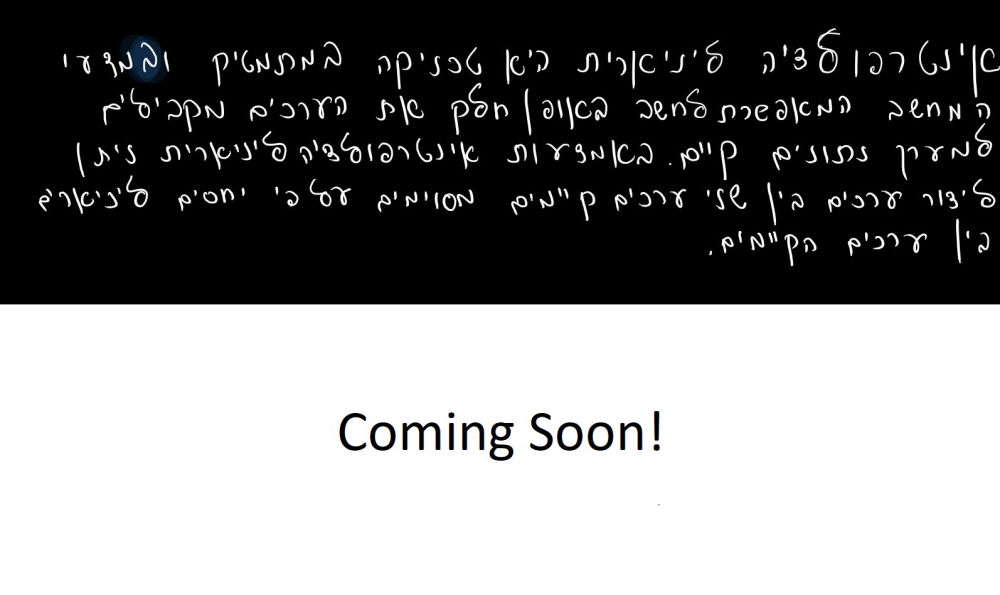 אינטרפולציה ליניארית היא טכניקה במתמטיק ובמדעי
המחשב המאפשרת לחשב באופן חלק את הערכים מקבילים
למערך נתונים קיים. באמצעות אינטרפולציה ליניארית ניתן
ליצור ערכים בין שני ערכים קיימים מסוימים על פי יחסים ליניארים
בין ערכים הקיימים.
Coming Soon!